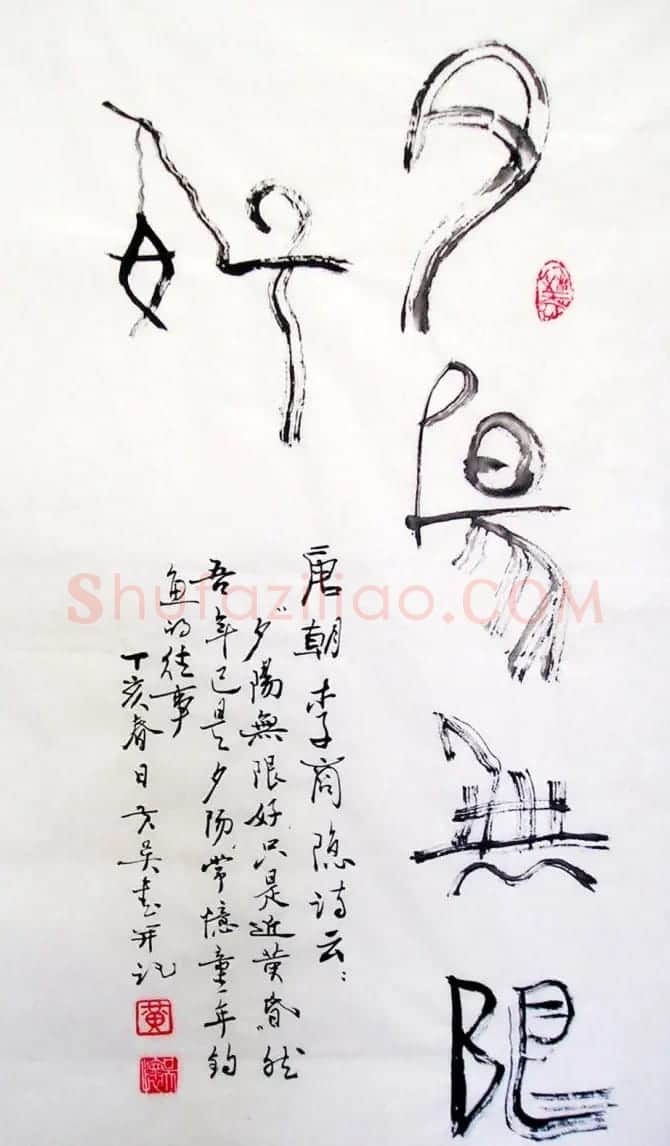 夕陽無限
好
唐朝李商隐诗云：
“夕陽無限好只是近黄昏”然
吾年已是夕阳常憶童年钓
鱼的往事
丁亥春日 吴書并记
黄
Shufaziliao.COM